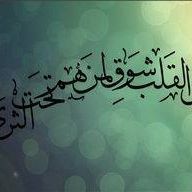 القلب شوق لمن هم تحت الثرى